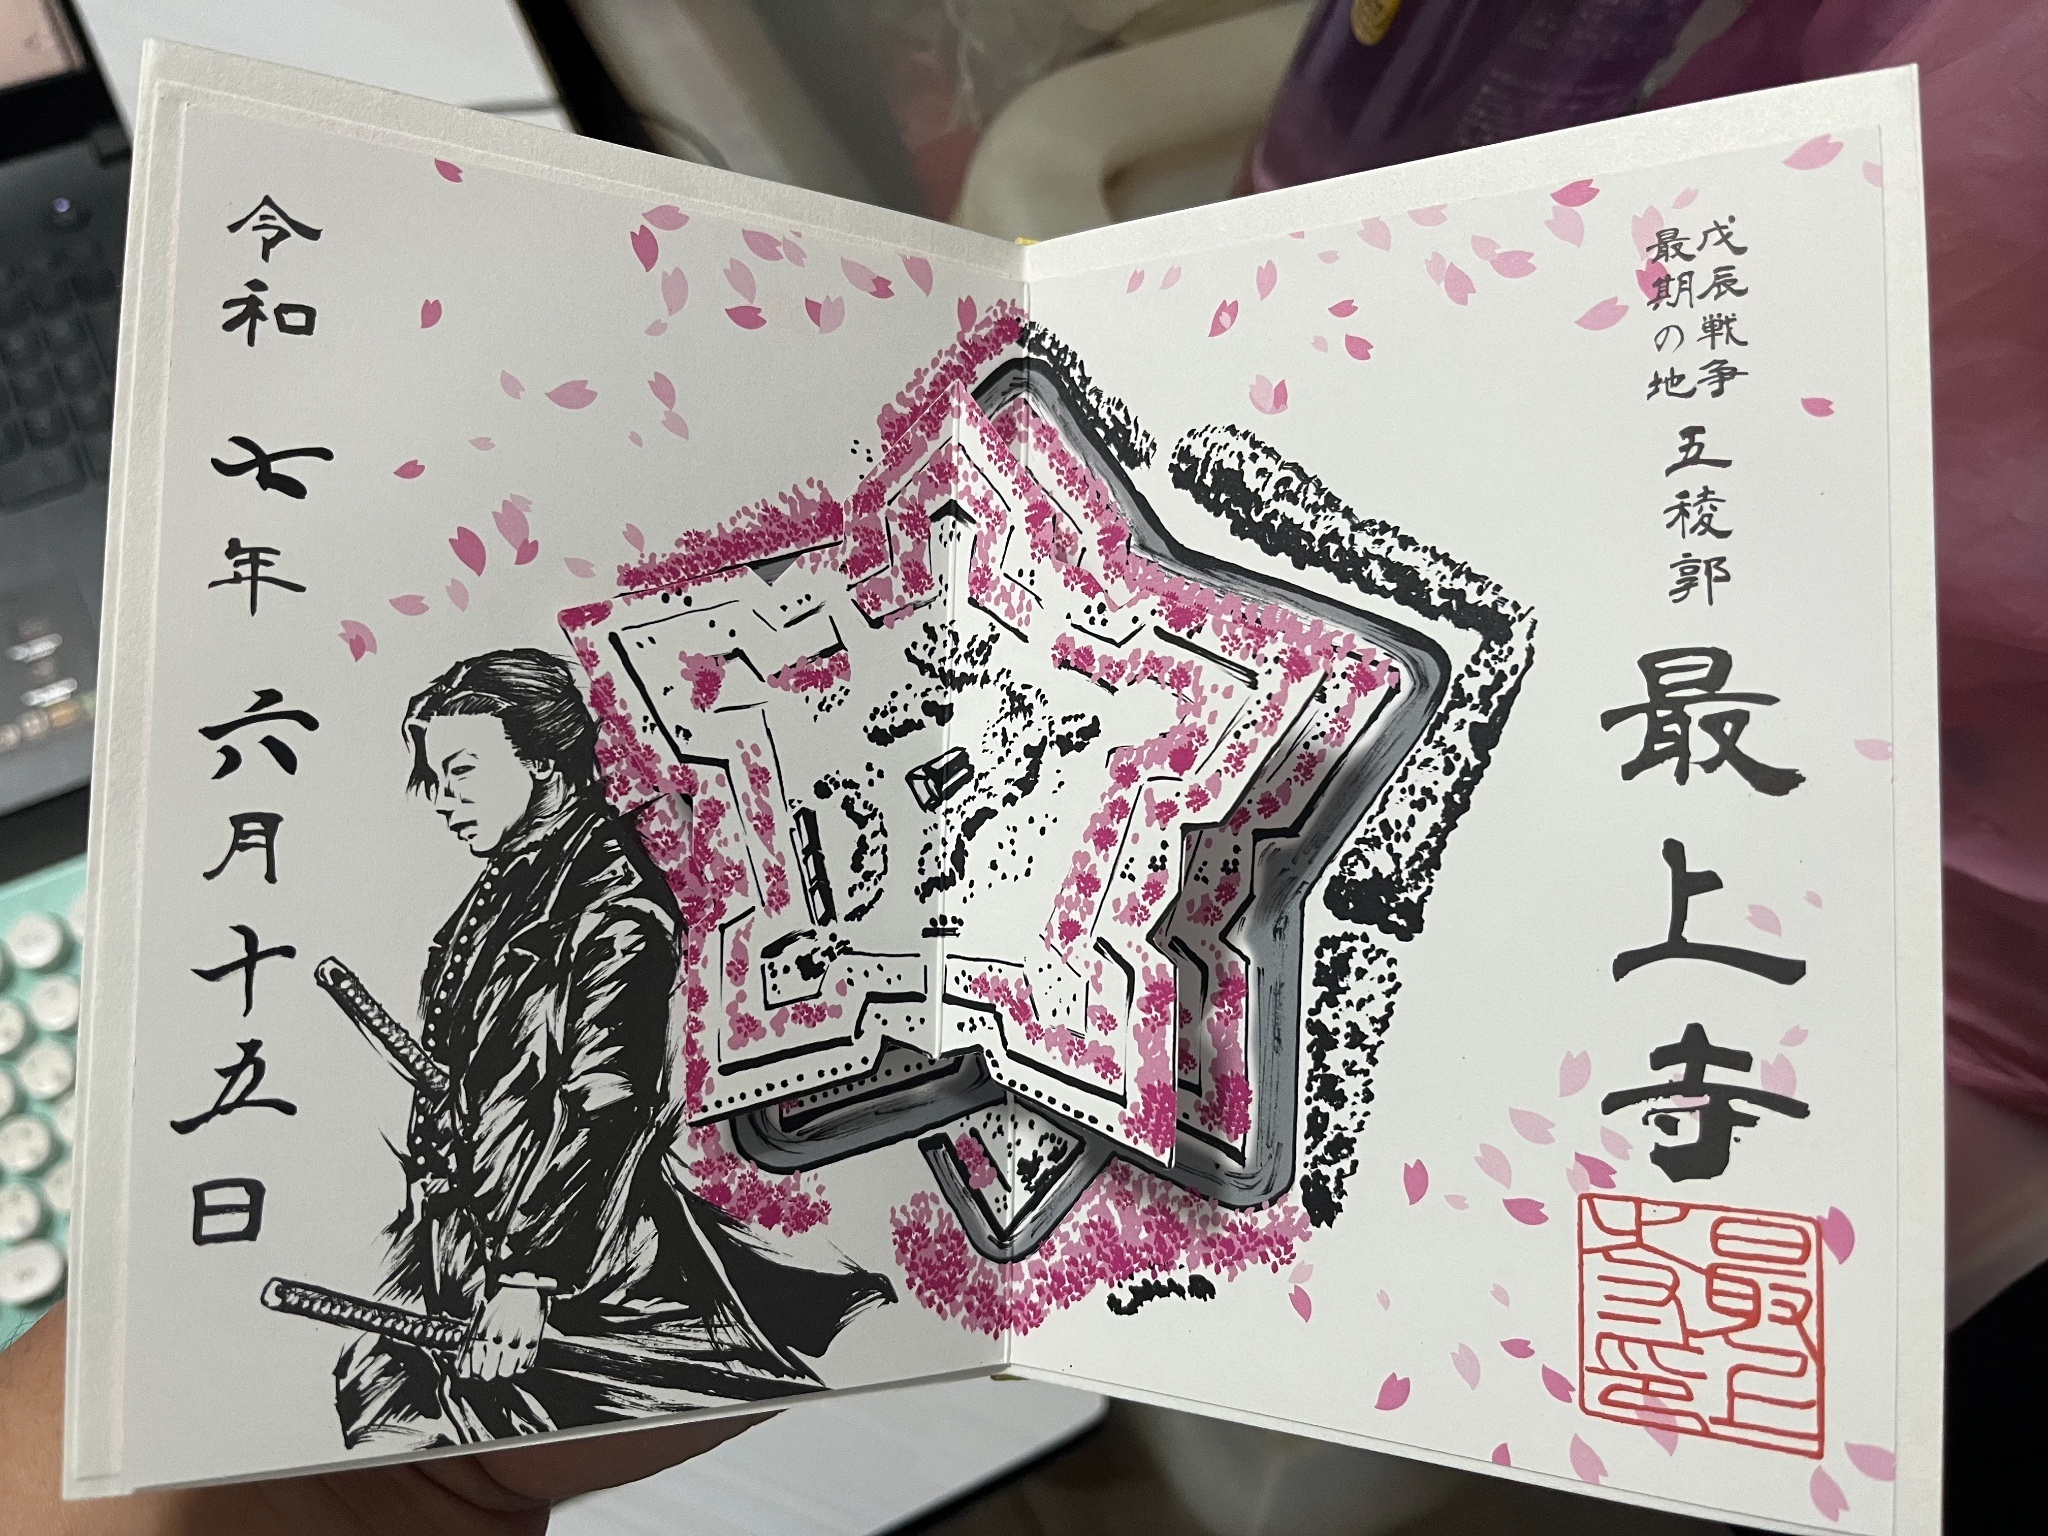 戊辰戦争
最期の地
五稜郭
最上寺
最上寺印
令和七年六月十五日